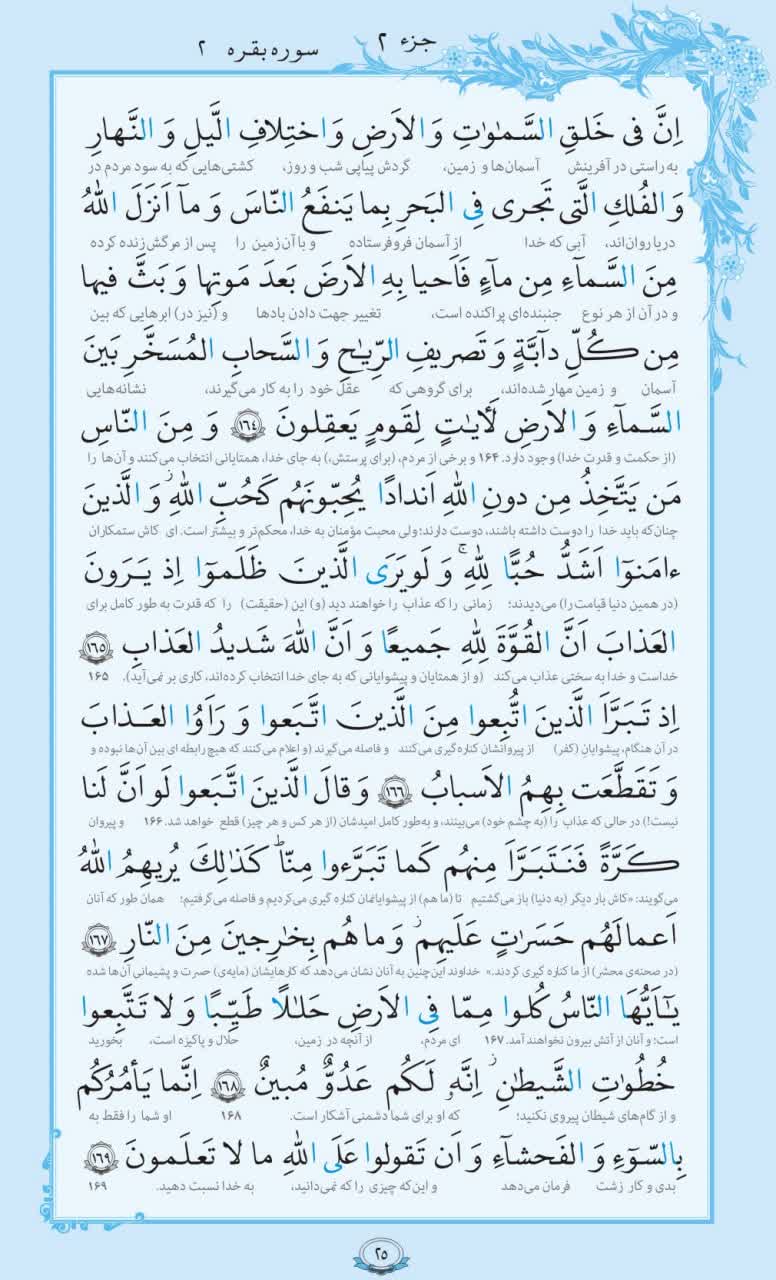 جزء ۲
سوره بقره ۲
اِنَّ فی خَلقِ السَّمٰوٰتِ وَ الاَرضِ وَ اختِلافِ الَّیلِ وَ النَّهارِ
به راستی در آفرینش آسمان‌ها و زمین، گردش پیاپی شب و روز، کشتی‌هایی که به سود مردم در
وَ الفُلكِ الَّتی تَجری فِی البَحرِ بِما یَنفَعُ النّاسَ وَ مآ اَنزَلَ اللّٰهُ
دریا روان‌اند، آبی که خدا از آسمان فروفرستاده و با آن زمین را پس از مرگش زنده کرده
مِنَ السَّمآءِ مِن مآءٍ فَاَحیا بِهِ الاَرضَ بَعدَ مَوتِها وَ بَثَّ فیها
و در آن از هر نوع جنبنده‌ای پراکنده است، تغییر جهت دادن بادها و (نیز در) ابرهایی که بین
مِن كُلِّ دآبَّةٍ وَ تَصریفِ الرِّیٰحِ وَ السَّحابِ المُسَخَّرِ بَینَ
آسمان و زمین مهار شده‌اند، برای گروهی که عقل خود را به کار می‌گیرند، نشانه‌هایی
السَّمآءِ وَ الاَرضِ لَأٰیٰتٍ لِقَومٍ یَعقِلونَ ﴿۱۶۴﴾ وَ مِنَ النّاسِ
(از حکمت و قدرت خدا) وجود دارد. ۱۶۴ و برخی از مردم، (برای پرستش،) به جای خدا، همتایانی انتخاب می‌کنند و آن‌ها را
مَن یَتَّخِذُ مِن دونِ اللّٰهِ اَندادًا یُحِبّونَهُم كَحُبِّ اللّٰهِ ز وَ الَّذینَ
چنان‌که باید خدا را دوست داشته باشند، دوست دارند؛ ولی محبت مؤمنان به خدا، محکم‌تر و بیشتر است. ای کاش ستمکاران
ءامَنوٓا اَشَدُّ حُبًّا لِلّٰهِ ج وَ لَو یَرَی الَّذینَ ظَلَموٓا اِذ یَرَونَ
(در همین دنیا قیامت را) می‌دیدند؛ زمانی را که عذاب را خواهند دید (و) این (حقیقت) را که قدرت به طور کامل برای
العَذابَ اَنَّ القُوَّةَ لِلّٰهِ جَمیعًا وَ اَنَّ اللّٰهَ شَدیدُ العَذابِ ﴿۱۶۵﴾
خداست و خدا به سختی عذاب می‌کند (و از همتایان و پیشوایانی که به جای خدا انتخاب کرده‌اند، کاری بر نمی‌آید). ۱۶۵
اِذ تَبَرَّاَ الَّذینَ اتُّبِعوا مِنَ الَّذینَ اتَّبَعوا وَ رَاَوُا العَذابَ
در آن هنگام، پیشوایان (کفر) از پیروانشان کناره گیری می‌کنند و فاصله می‌گیرند (و اعلام می‌کنند که هیچ رابطه ای بین آن‌ها نبوده و
وَ تَقَطَّعَت بِهِمُ الاَسبابُ ﴿۱۶۶﴾ وَ قالَ الَّذینَ اتَّبَعوا لَو اَنَّ لَنا
نیست!) در حالی که عذاب را (به چشم خود) می‌بینند، و به‌طور کامل امیدشان (از هر کس و هر چیز) قطع خواهد شد. ۱۶۶ و پیروان
كَرَّةً فَنَتَبَرَّاَ مِنهُم كَما تَبَرَّءوا مِنّا ط كَذٰلِكَ یُریهِمُ اللّٰهُ
می‌گویند: «کاش بار دیگر (به دنیا) باز می‌گشتیم تا (ما هم) از پیشوایانمان کناره گیری می‌کردیم و فاصله می‌گرفتیم؛ همان طور که آنان
اَعمالَهُم حَسَراتٍ عَلَیهِم ز وَ ما هُم بِخٰرِجینَ مِنَ النّارِ ﴿۱۶۷﴾
(در صحنه‌ی محشر) از ما کناره گیری کردند.» خداوند این‌چنین به آنان نشان می‌دهد که کارهایشان (مایه‌ی) حسرت و پشیمانی آن‌ها شده
یٰٓاَیُّهَا النّاسُ كُلوا مِمّا فِی الاَرضِ حَلٰلًا طَیِّبًا وَ لا تَتَّبِعوا
است؛ و آنان از آتش بیرون نخواهند آمد. ۱۶۷ ای مردم، از آنچه در زمین، حلال و پاکیزه است، بخورید
خُطُوٰتِ الشَّیطٰنِ ز اِنَّهٗ لَكُم عَدُوٌّ مُبینٌ ﴿۱۶۸﴾ اِنَّما یَأمُرُكُم
و از گام‌های شیطان پیروی نکنید؛ که او برای شما دشمنی آشکار است. ۱۶۸ او شما را فقط به
بِالسّوٓءِ وَ الفَحشآءِ وَ اَن تَقولوا عَلَی اللّٰهِ ما لا تَعلَمونَ ﴿۱۶۹﴾
بدی و کار زشت فرمان می‌دهد و این‌که چیزی را که نمی‌دانید، به خدا نسبت دهید. ۱۶۹
۲۵